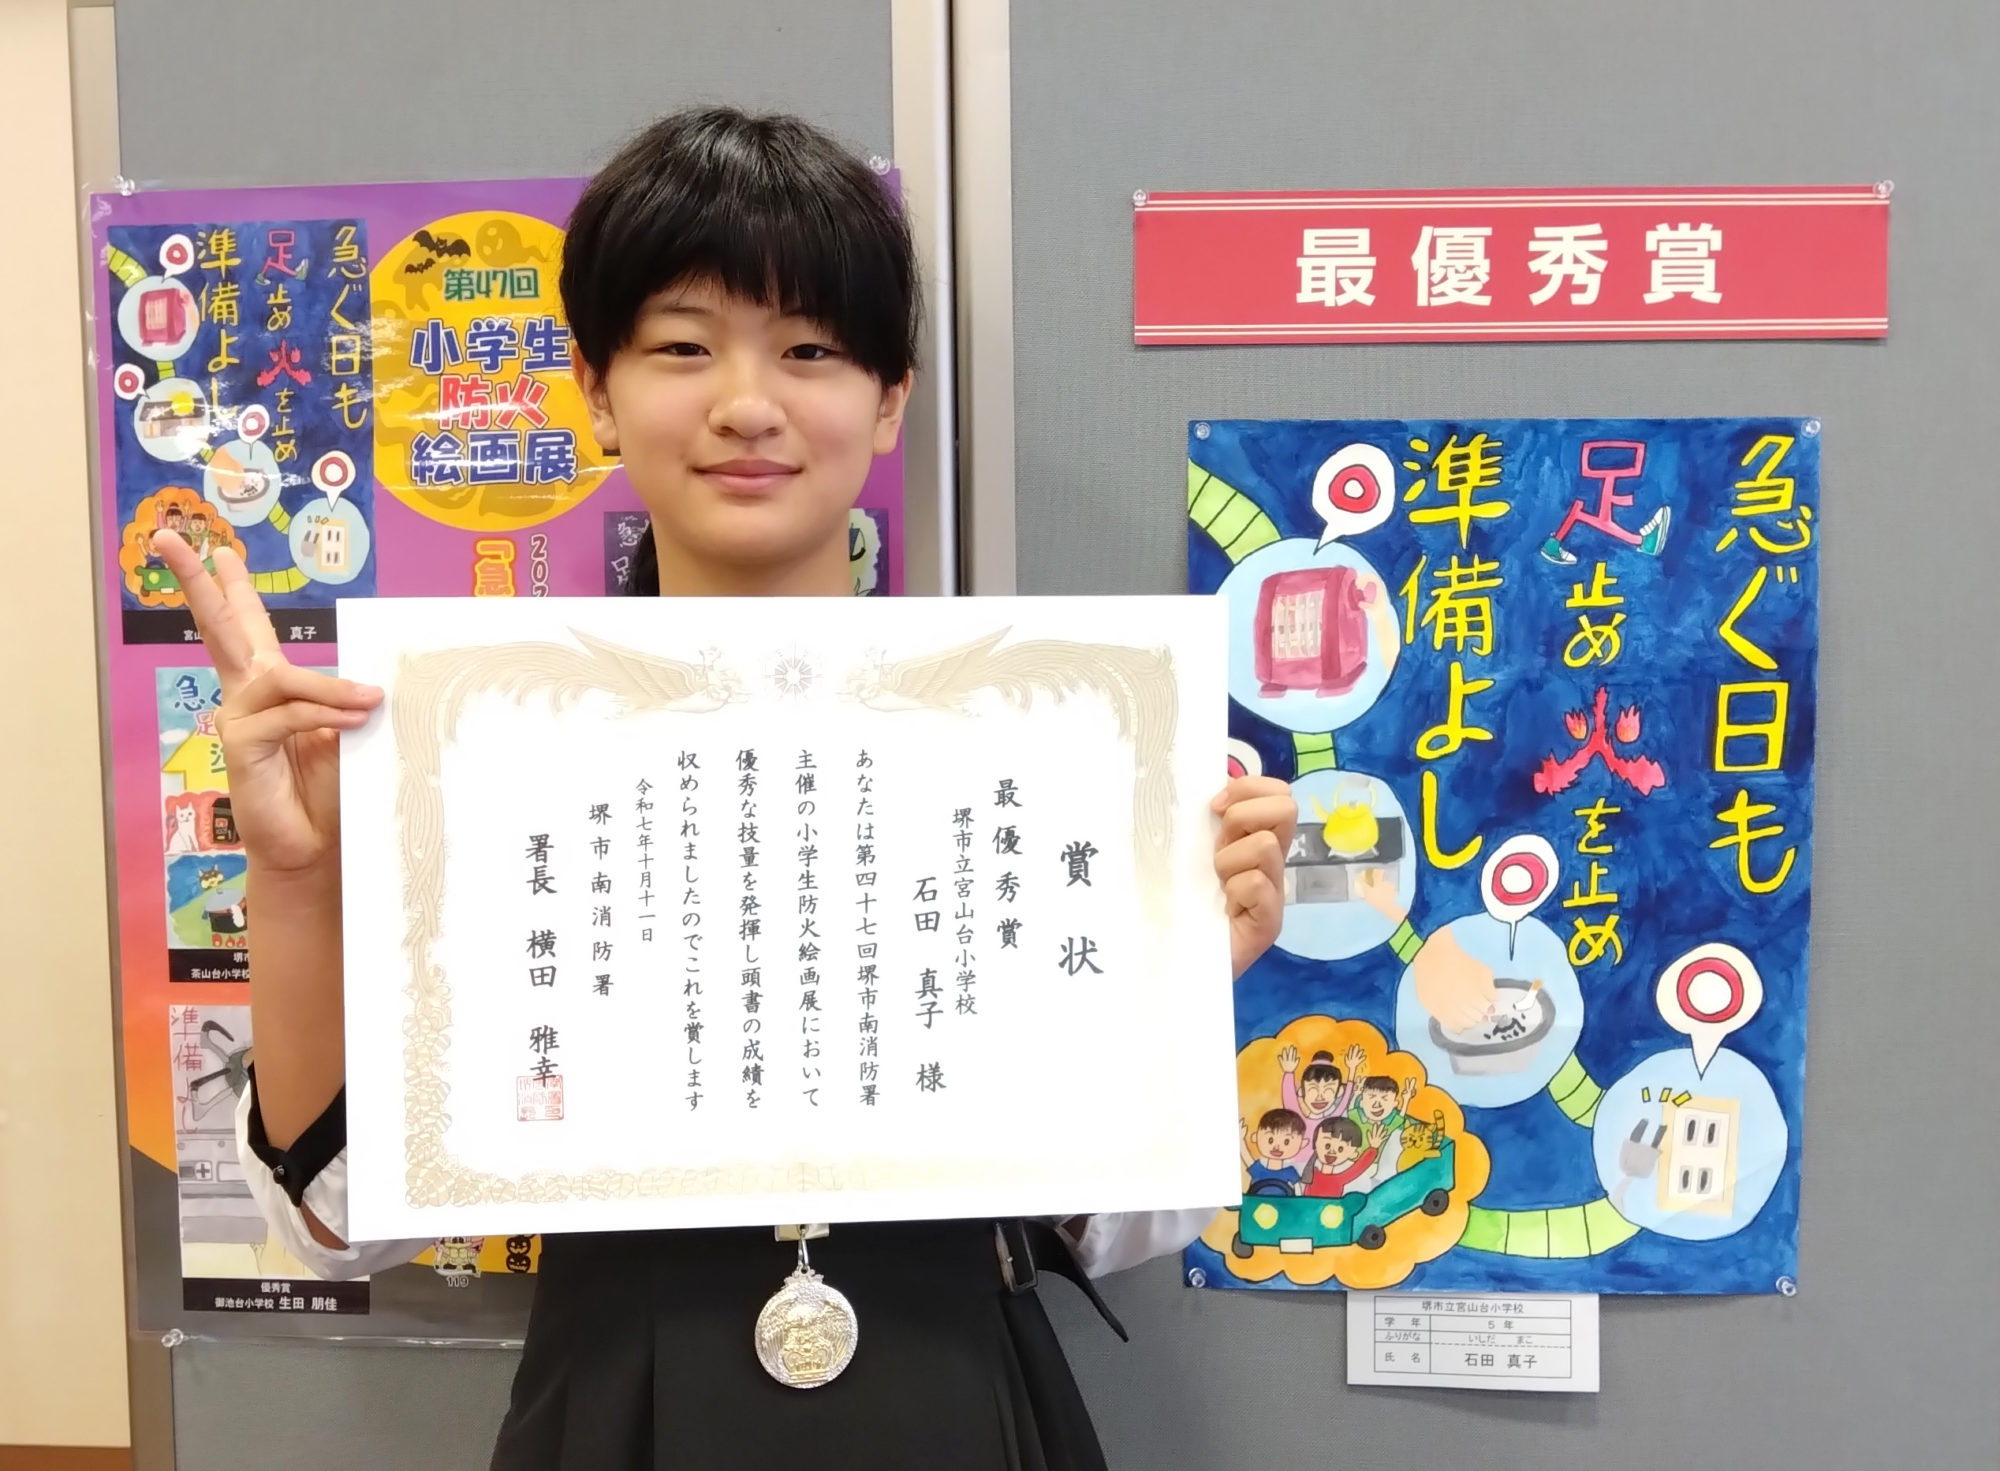 最優秀賞
急ぐ日も
足止め火を止め
準備よし
堺市立宮山台小学校
学年 5年
ふりがな いしだ まこ
氏名 石田 真子
賞状
最優秀賞
堺市立宮山台小学校
石田 真子 様
あなたは第四十七回堺市南消防署
主催の小学生防火絵画展において
優秀な技量を発揮し頭書の成績を
収められましたのでこれを賞します
令和七年十月十一日
堺市南消防署
署長 横田 雅幸
第47回
小学生
防火
絵画展
急ぐ日も
足止め火を止め
準備よし
真子
茶山台小学校
優秀賞
御池台小学校 生田 朋佳
119